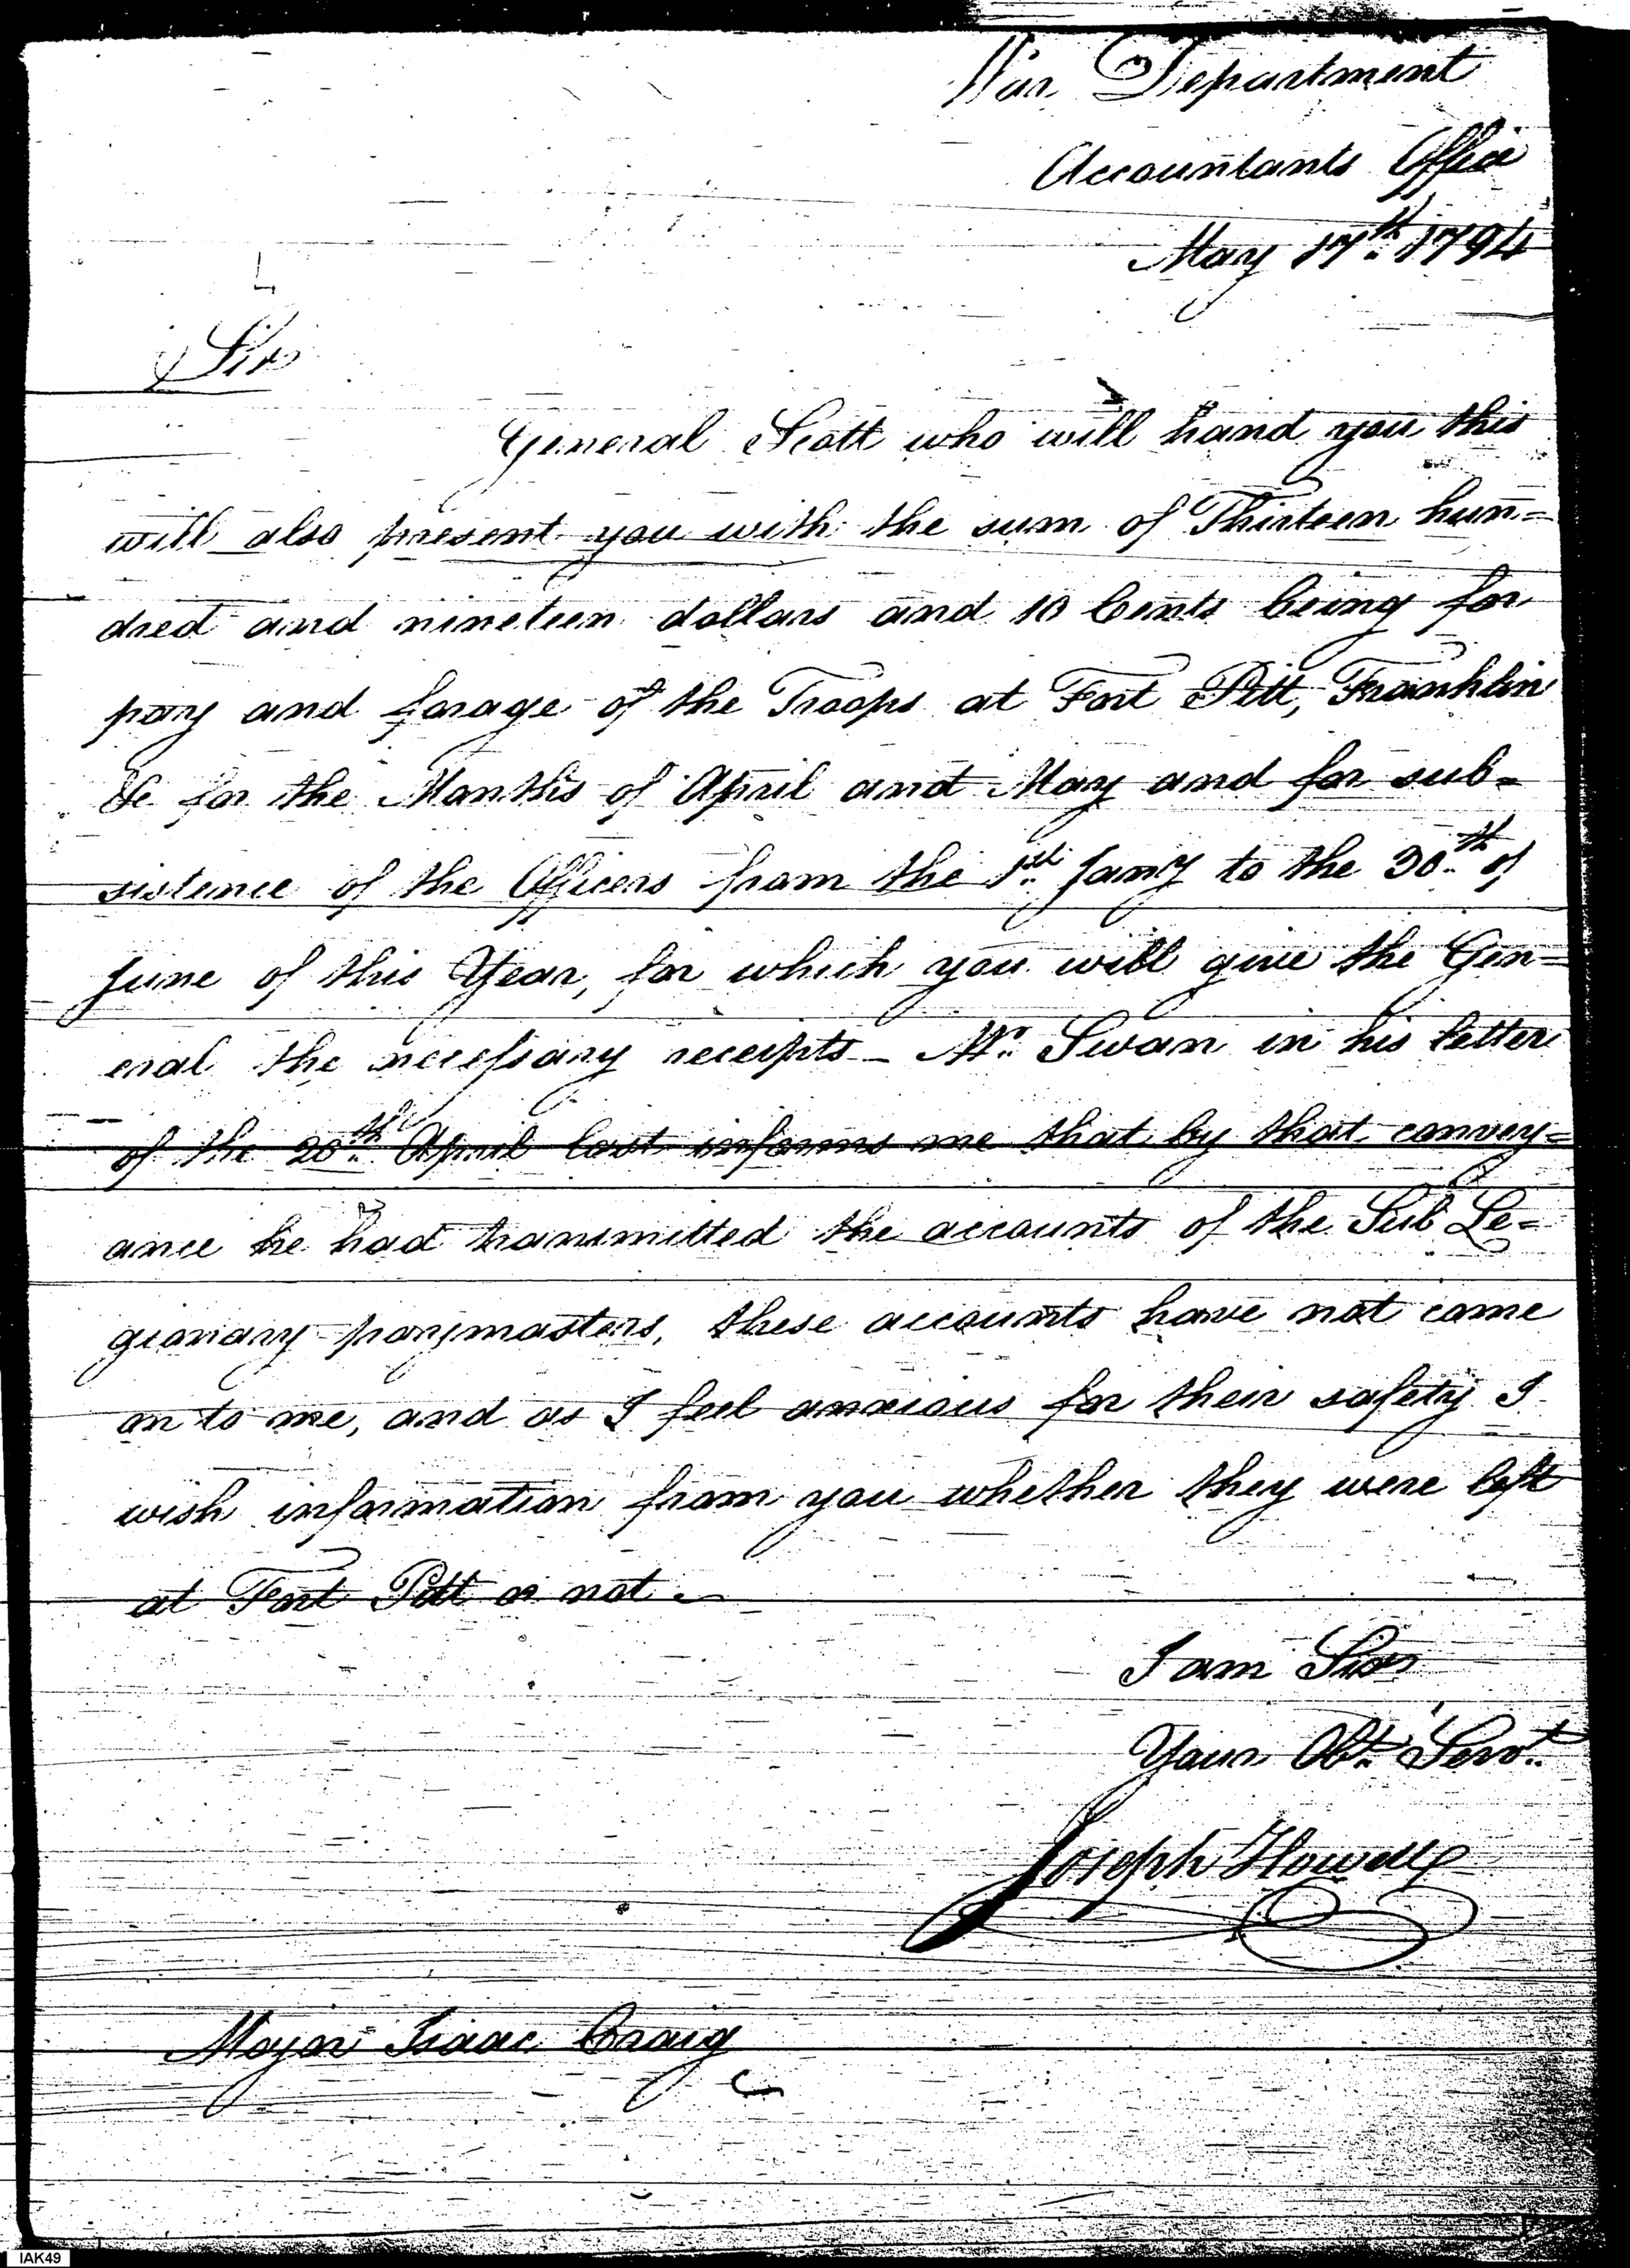 War Department
Accountants Office
May 17th. 1794
Sir
General Scott who will hand you this
will also present you with the sum of Thirteen hun=
dred and nineteen dollars and 10 Cents being for
pay and forage of the Troops at Fort Pitt, Franklin
&c for the Months of April and May and for sub=
sistence of the Officers from the 1st. Jany to the 30th. of
June of this Year, for which you will give the Gen=
eral the necessary receipts_ Mr. Swan in his letter
of the 20th. April last informs me that by that convey=
ance he had transmitted the accounts of the Sub Le=
gionary paymasters, these accounts have not come
on to me, and as I feel anxious for their safety I
wish information from you whether they were left
at Fort Pitt or not.
I am Sir
Your Obt. Servt.
Joseph Howell
Major Isaac Craig
IAK49